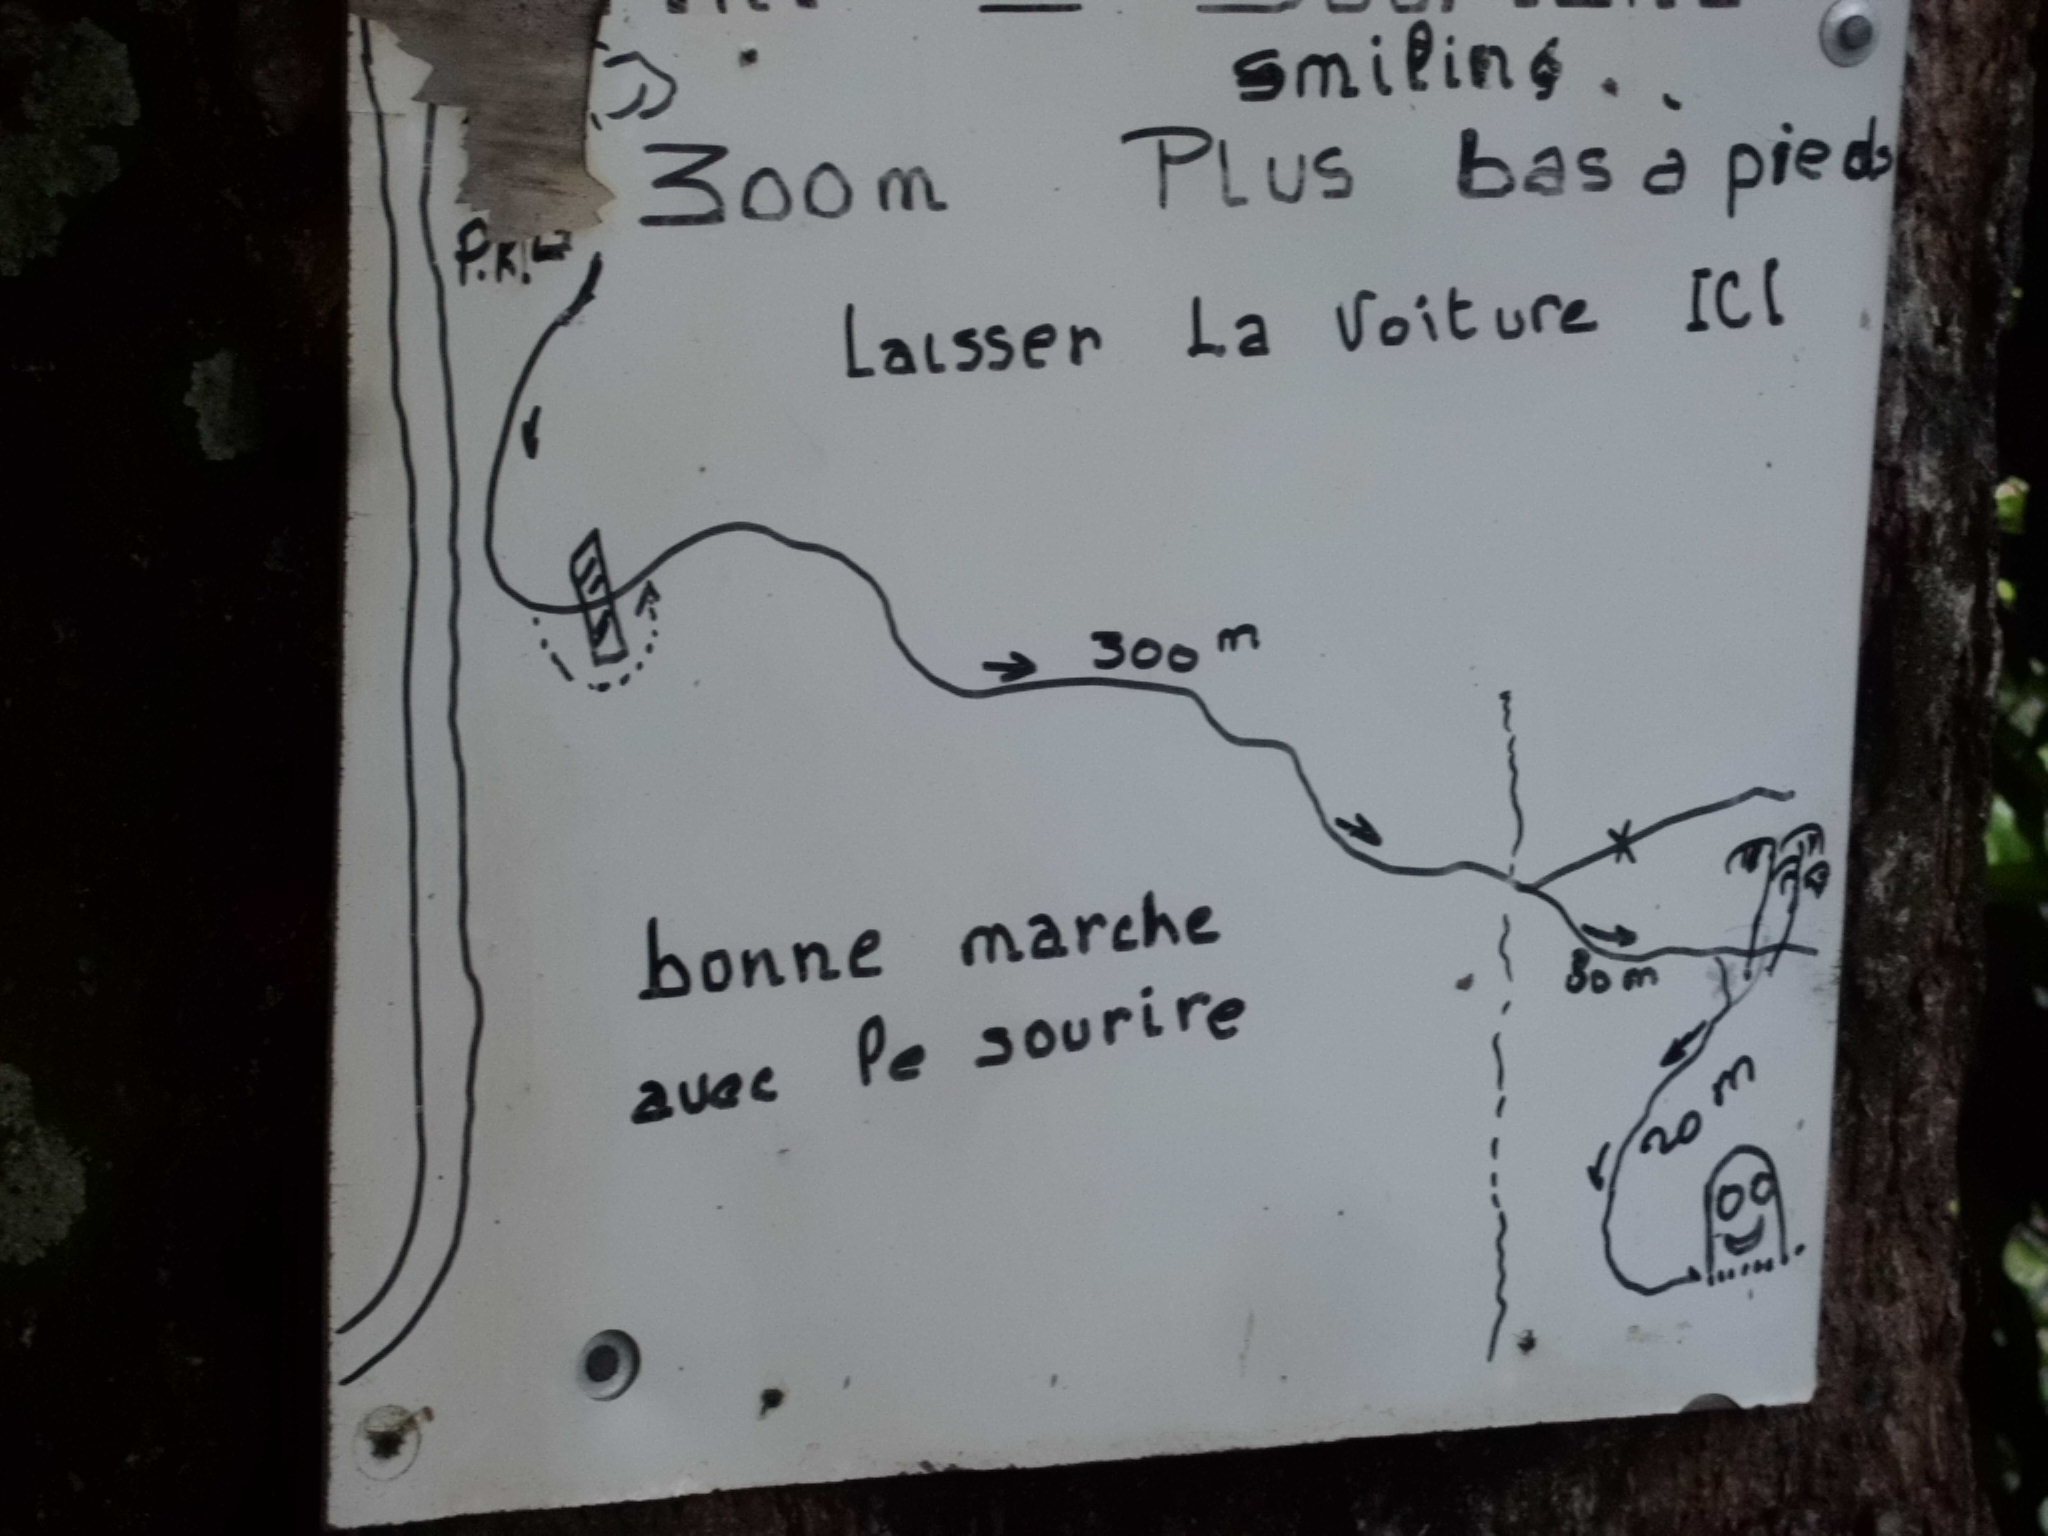 smiling..
300m Plus bas a pieds
P.K.
Laisser La Voiture ICI
300 m
80 m
bonne marche
avec le sourire
20 m